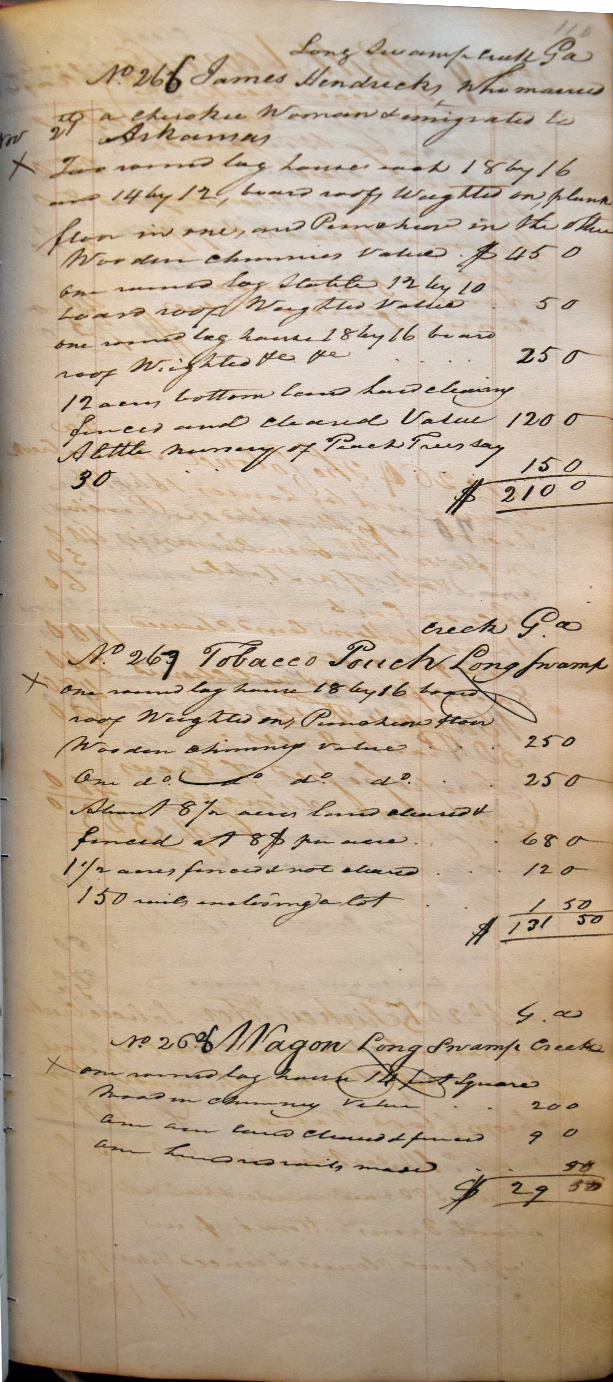 Long Swamp creek Ga
No. 266 James Hendricks, who married
Nov 29 a cherokee Woman & emigrated to
Arkansas
X Two round log houses each 18 by 16
and 14 by 12, board roofs Weighted on, plank
floor in one, and Puncheon in the other
Wooden chimnies Value $ 45 0
one round log Stable 12 by 10
board roof Weighted Value 5 0
one round log house 18 by 16 board
roof Weighted &c &c 25 0
12 acres bottom land hard clearing
fenced and cleared Value 120 0
A little nursery of Peach Trees say
30 15 0
$ 210 0
creek Ga
No. 267 Tobacco Pouch Long Swamp
X one round log house 18 by 16 board
roof Weighted on, Puncheon floor
Wooden chimney Value 25 0
One do. do. do. do. 25 0
About 8 1/2 acres land cleared &
fenced at 8$ per acre 68 0
1 1/2 acres fenced & not cleared 12 0
150 rails enclosing a lot 1 50
$ 131 50
Ga
No. 268 Wagon Long Swamp Creek
X one round log house 14 feet Square
Wooden chimney Value 20 0
one acre land cleared & fenced 9 0
one hundred rails made 50
$ 29 50